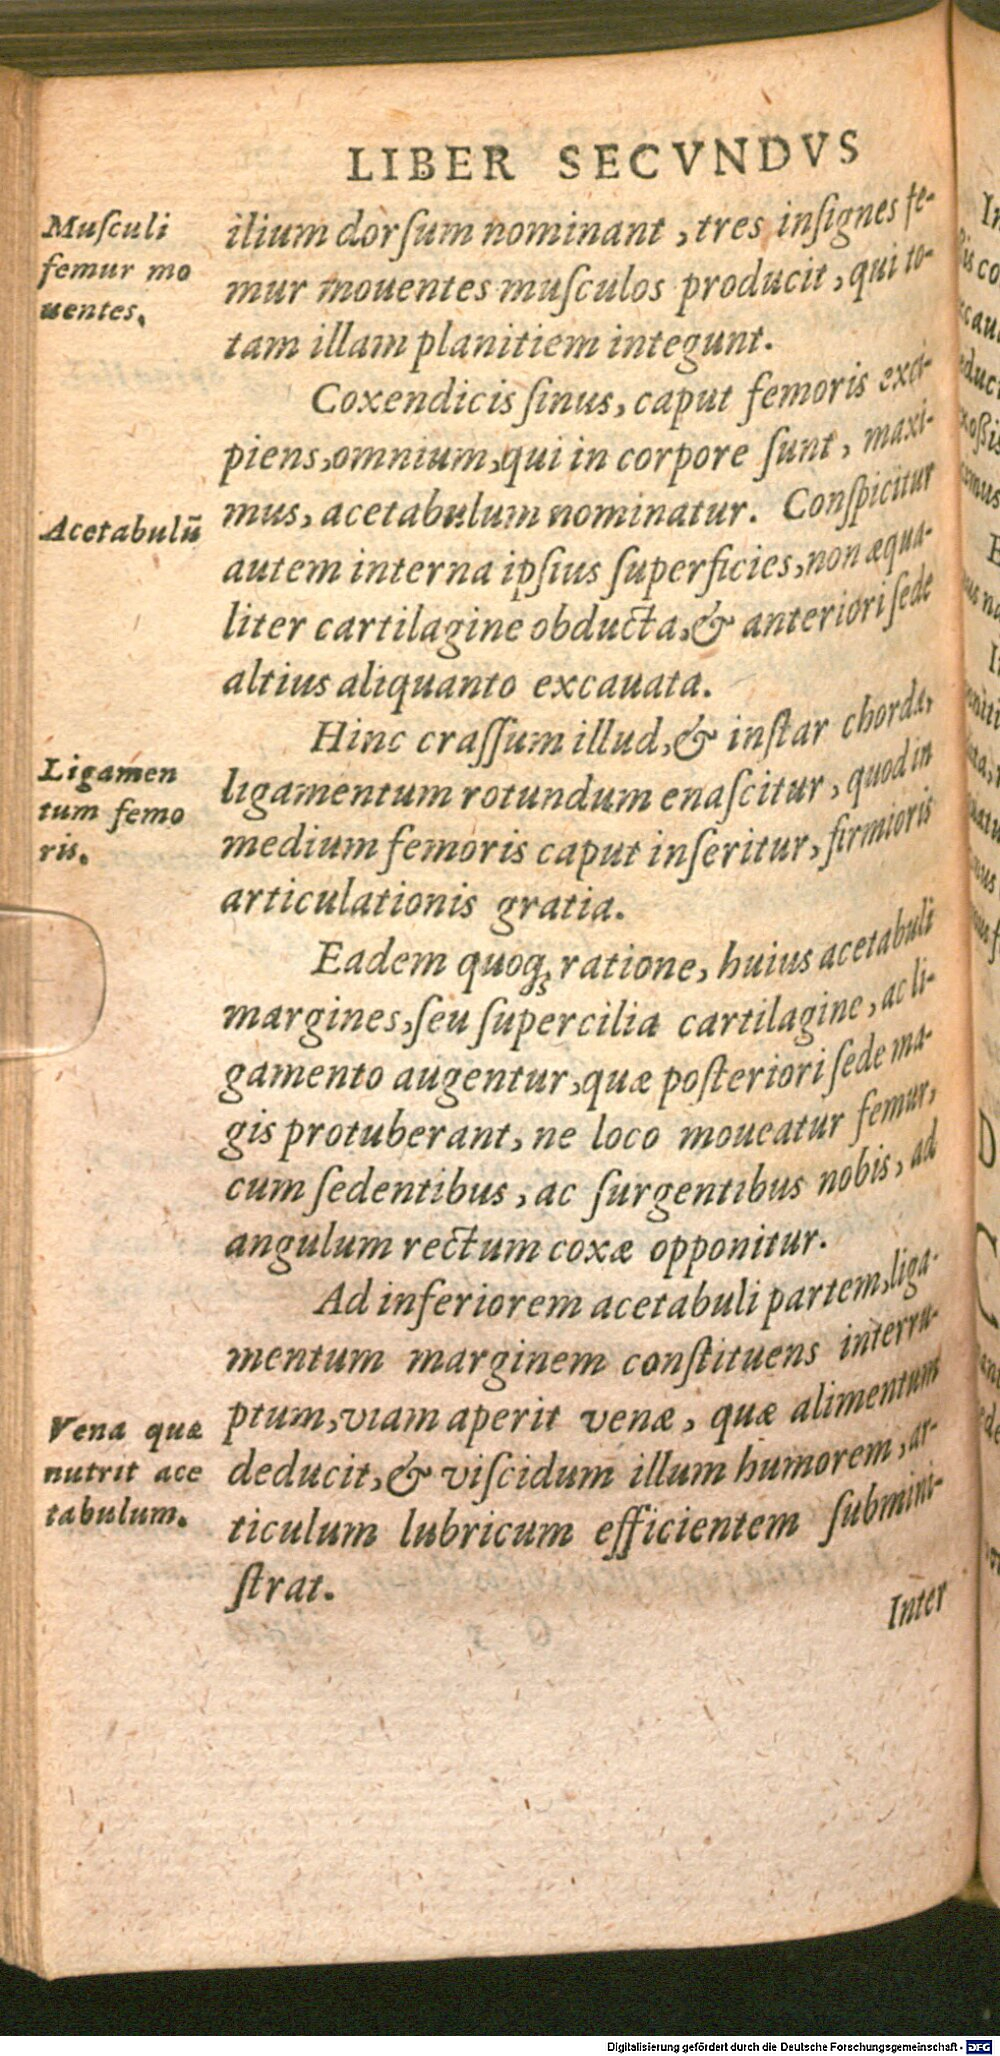 LIBER SECVNDVS
Muſculi
femur mo
uentes.
ilium dorſum nominant, tres inſignes fe-
mur mouentes muſculos producit, qui to-
tam illam planitiem integunt.
Coxendicis ſinus, caput femoris exci-
piens, omnium, qui in corpore ſunt, maxi-
mus, acetabulum nominatur. Conſpicitur
Acetabulū
autem interna ipſius ſuperficies, non æqua-
liter cartilagine obducta, & anteriori ſede
altius aliquanto excauata.
Hinc craſſum illud, & inſtar chordæ,
Ligamen
tum femo
ris.
ligamentum rotundum enaſcitur, quod in
medium femoris caput inſeritur, firmioris
articulationis gratia.
Eadem quoq; ratione, huius acetabuli
margines, ſeu ſupercilia cartilagine, ac li-
gamento augentur, quæ poſteriori ſede ma-
gis protuberant, ne loco moueatur femur,
cum ſedentibus, ac ſurgentibus nobis, ad
angulum rectum coxæ opponitur.
Ad inferiorem acetabuli partem, liga-
mentum marginem conſtituens interru-
ptum, viam aperit venæ, quæ alimentum
Vena quæ
nutrit ace
tabulum.
deducit, & viſcidum illum humorem, ar-
ticulum lubricum efficientem ſubmini-
ſtrat.
Inter
Digitalisierung gefördert durch die Deutsche Forschungsgemeinschaft - DFG